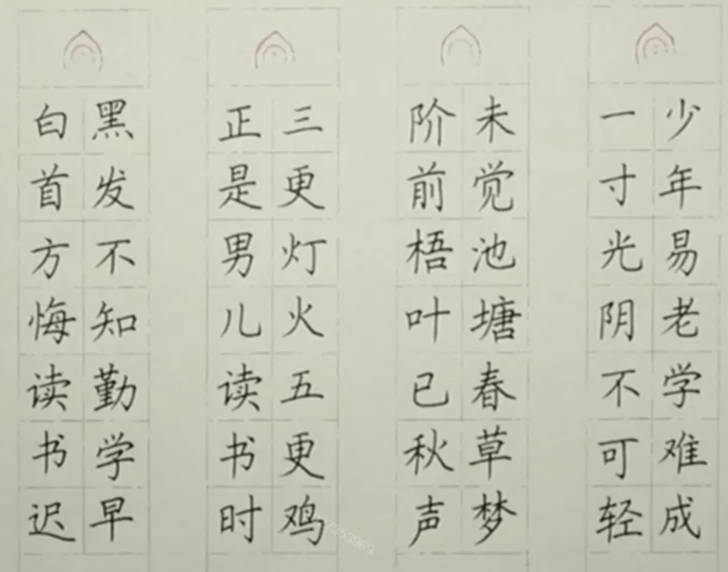 少年易老学难成
一寸光阴不可轻
未觉池塘春草梦
阶前梧叶已秋声
三更灯火五更鸡
正是男儿读书时
黑发不知勤学早
白首方悔读书迟